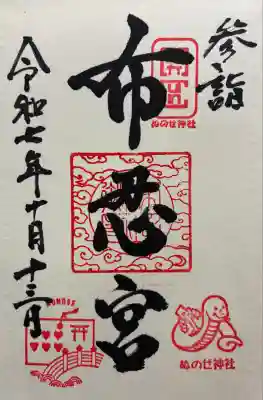 参詣
布忍宮
令和七年十月十三日
ぬのせ神社
ぬのせ神社